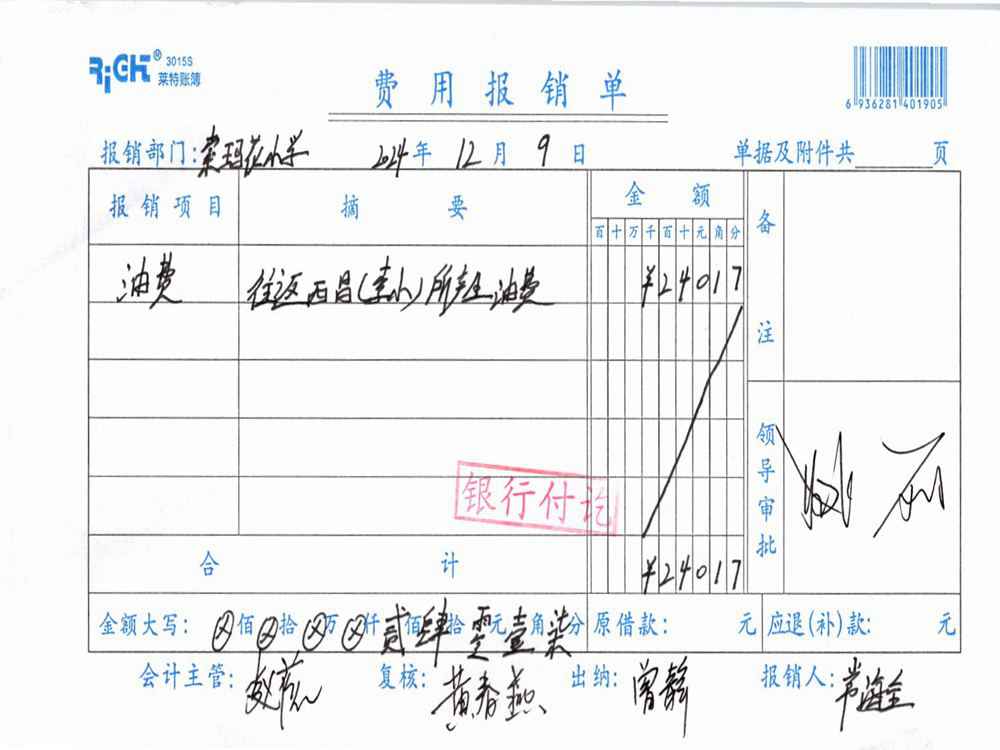 RiGHT® 3015S
莱特账簿
费用报销单
6 936281 401905
报销部门:索玛花小学 2024年 12月 9日 单据及附件共 页
报销项目 摘要 金额 备注
百十万千百十元角分
油费 往返西昌(索小)所产生油费 ¥24017
银行付讫
领导审批
合计 ¥24017
金额大写: ⊗佰⊗拾⊗万⊗仟贰佰肆拾零元壹角柒分 原借款: 元 应退(补)款: 元
会计主管: 复核:黄春燕 出纳:曾静 报销人: